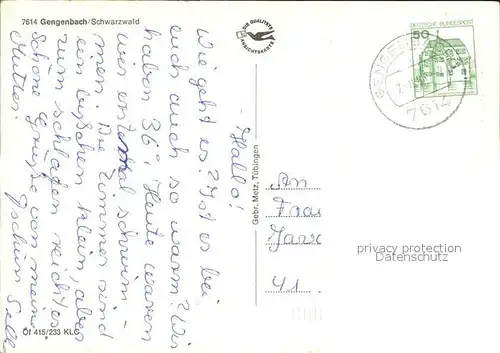 7614 Gengenbach/Schwarzwald
Hallo!
Wie geht es? Ist es bei
euch auch so warm? Wir
haben 36°! Heute waren
wir erstmal schwim-
men. Die Zimmer sind
ein bißchen klein, aber
zum schlafen reicht es.
Schöne Grüße von meiner
Mutter.
Öf 415/233 KLC
Gebr. Metz, Tübingen
DIE QUALITÄTS
ANSICHTSKARTE
50
DEUTSCHE BUNDESPOST
7614
An
Frau
41
privacy protection
Datenschutz